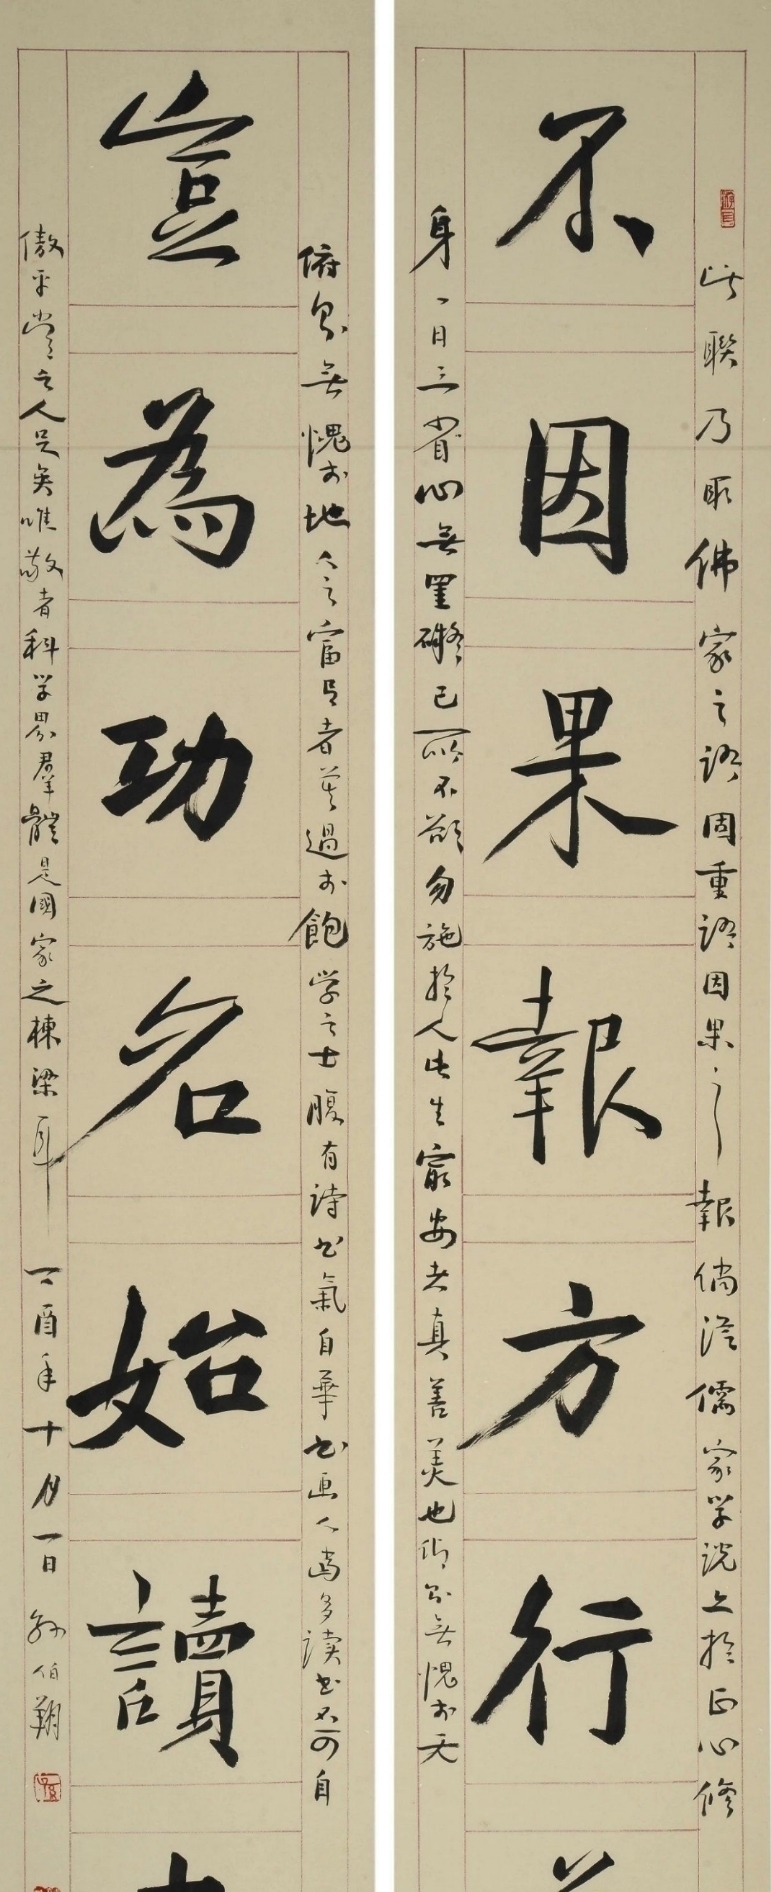 此聯乃取佛家之語固重語因果之報倘從儒家学说上於正心修
不因果報方行
身一日三省心無罣礙己所不欲勿施於人此生最安者真善美也仰則無愧於天
俯則無愧於地今之富足者莫過於飽学之士腹有詩书氣自華书画人當多读书不可自
豈為功名始讀
傲平常之人足矣唯敬者科学界羣體是國家之棟梁耳 丁酉年十月一日 孙伯翔